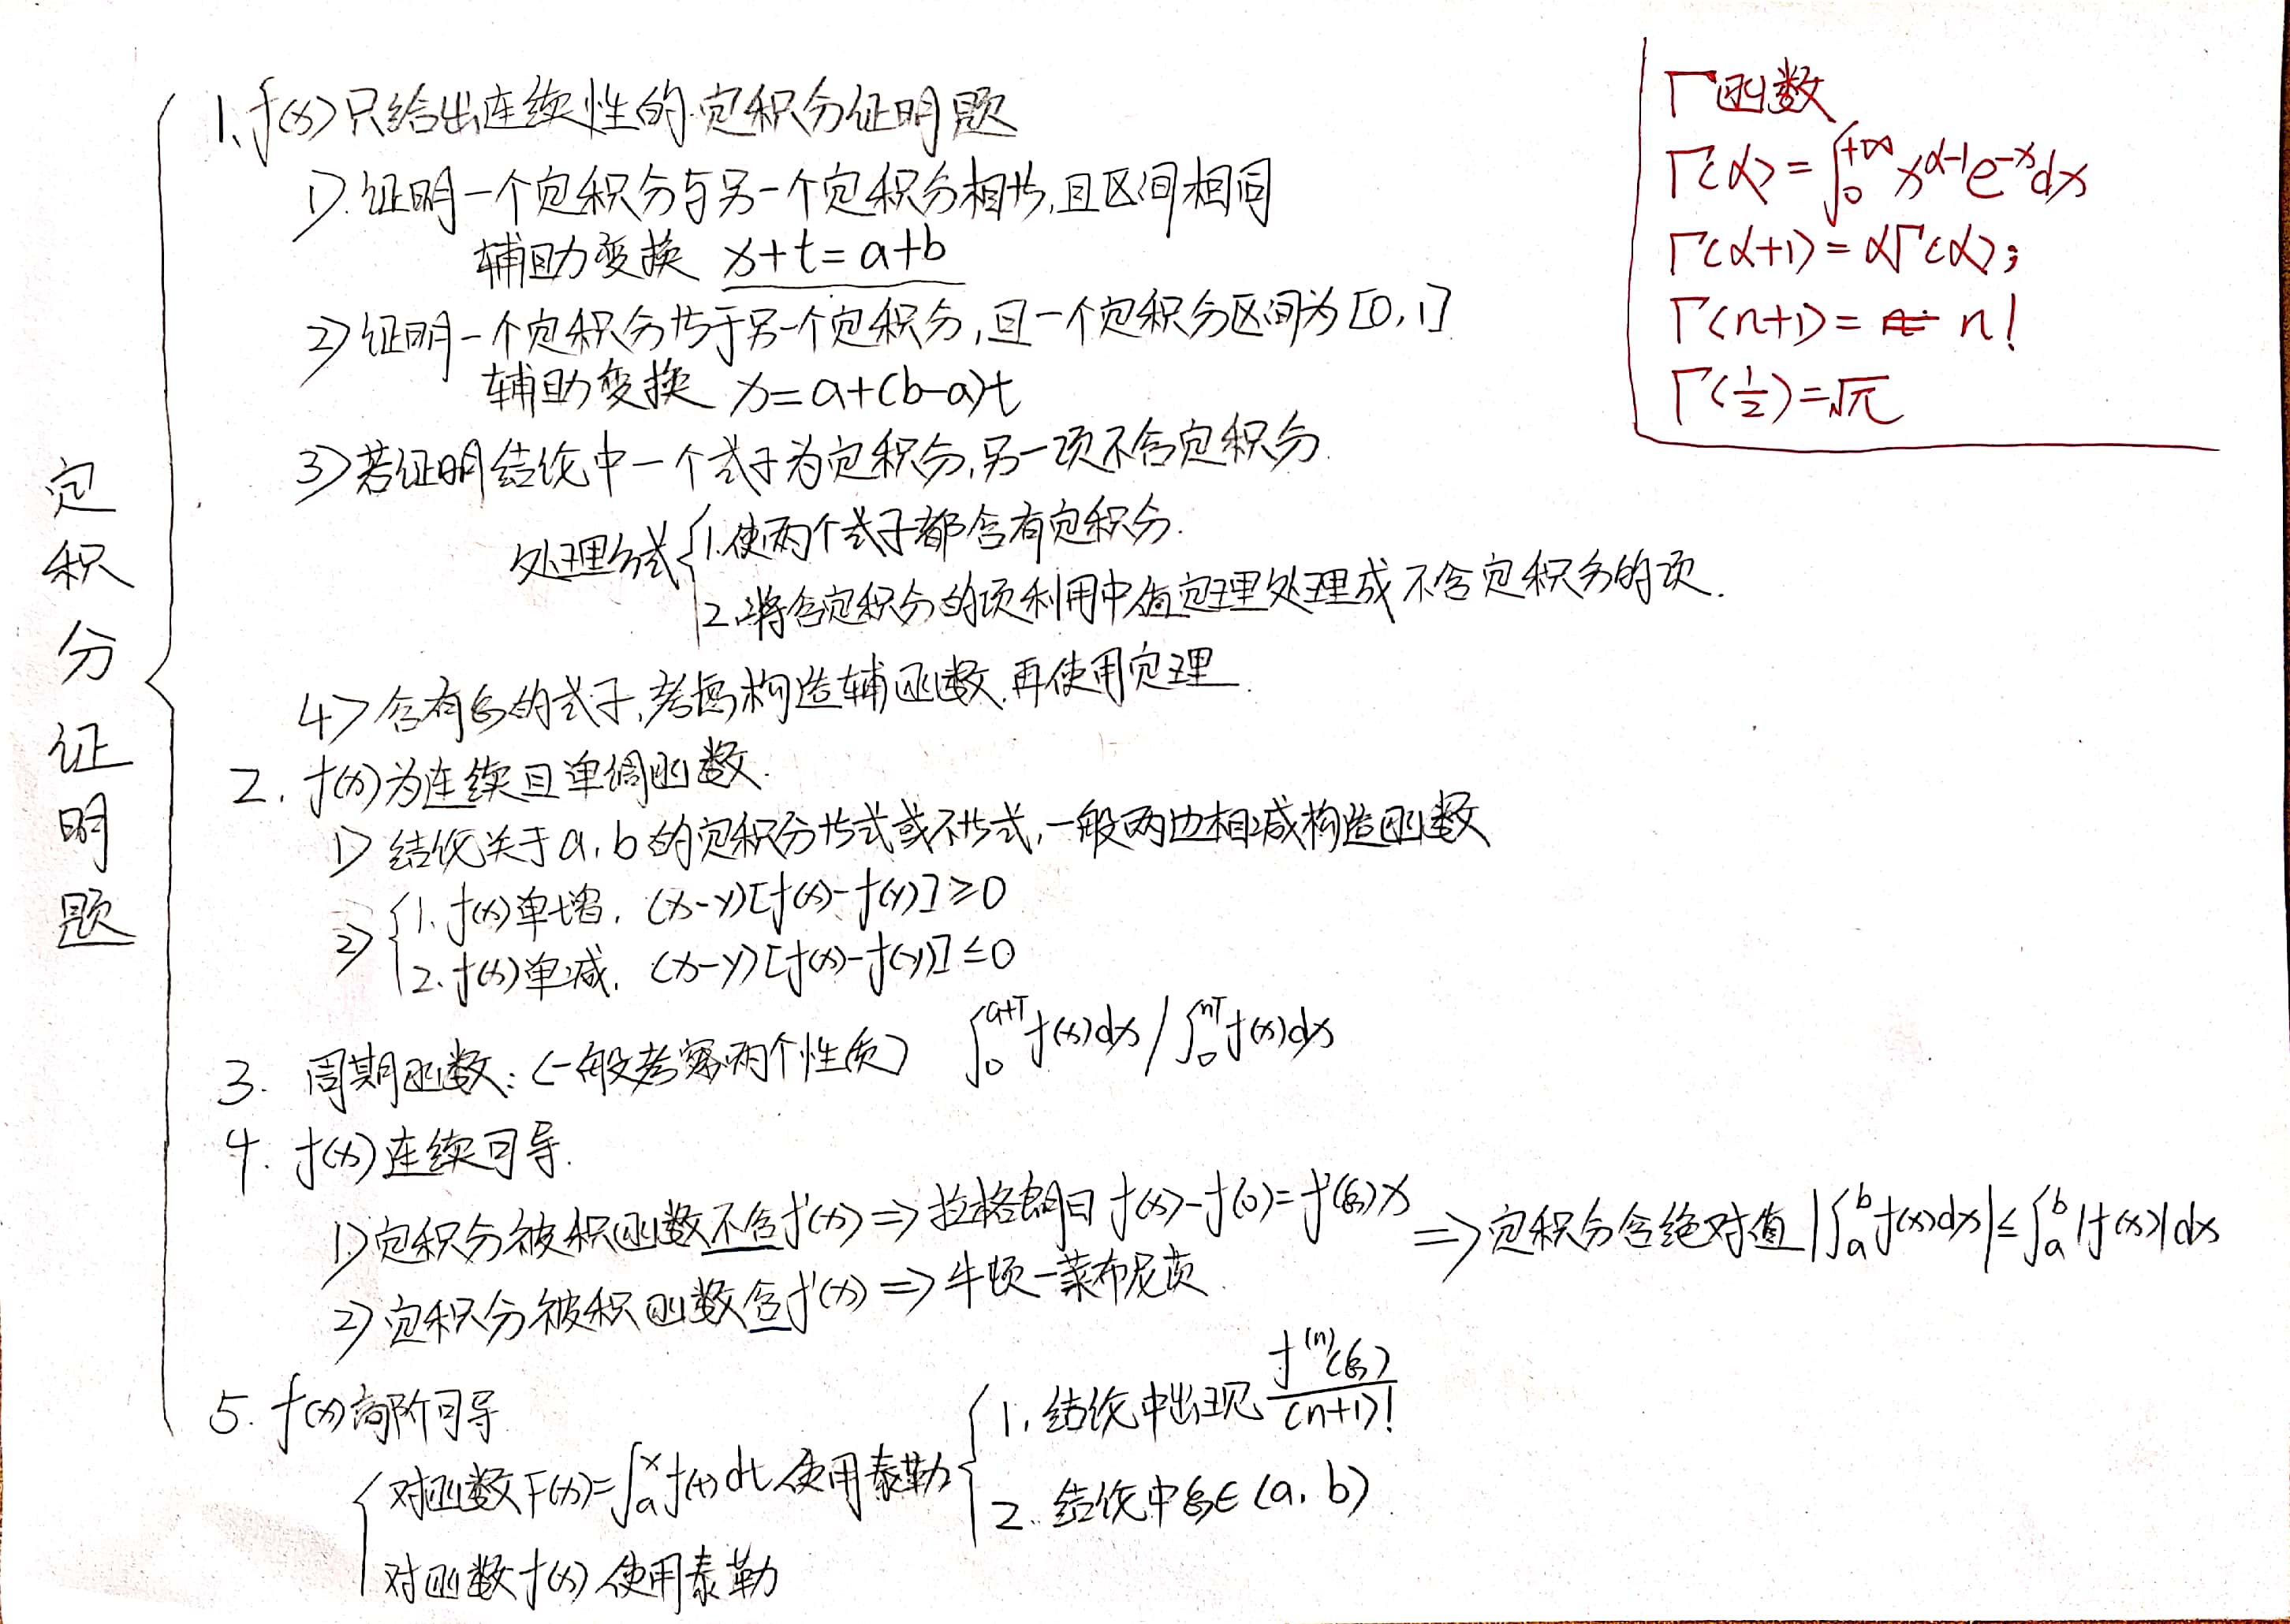 定积分证明题
1、f(x)只给出连续性的定积分证明题
1).证明一个定积分与另一个定积分相等,且区间相同
辅助变换 x+t=a+b
2)证明一个定积分等于另一个定积分,且一个定积分区间为[0,1]
辅助变换 x=a+(b-a)t
3)若证明结论中一个式子为定积分,另一项不含定积分.
处理方式
1.使两个式子都含有定积分.
2.将含定积分的项利用中值定理处理成不含定积分的项.
4)含有ξ的式子,考虑构造辅函数,再使用定理.
2. f(x)为连续且单调函数.
1)结论关于a,b的定积分等式或不等式,一般两边相减构造函数
2)
1. f(x)单增, (x-y)[f(x)-f(y)]≥0
2. f(x)单减, (x-y)[f(x)-f(y)]≤0
3. 周期函数:(一般考察两个性质) ∫₀^{a+T} f(x)dx / ∫₀^{nT} f(x)dx
4. f(x)连续可导.
1)定积分被积函数不含f'(x) ⇒ 拉格朗日 f(x)-f(0)=f'(ξ)x
2)定积分被积函数含f'(x) ⇒ 牛顿-莱布尼茨
⇒定积分含绝对值 |∫_a^b f(x)dx| ≤ ∫_a^b |f(x)|dx
5. f(x)高阶可导
对函数F(x)=∫_a^x f(t)dt使用泰勒
1. 结论中出现 f^{(n)}(ξ)/(n+1)!
2. 结论中ξ∈(a,b)
对函数f(x)使用泰勒
Γ函数
Γ(α)=∫₀^{+∞} x^{α-1}e^{-x}dx
Γ(α+1)=αΓ(α);
Γ(n+1)= n!
Γ(1/2)=√π